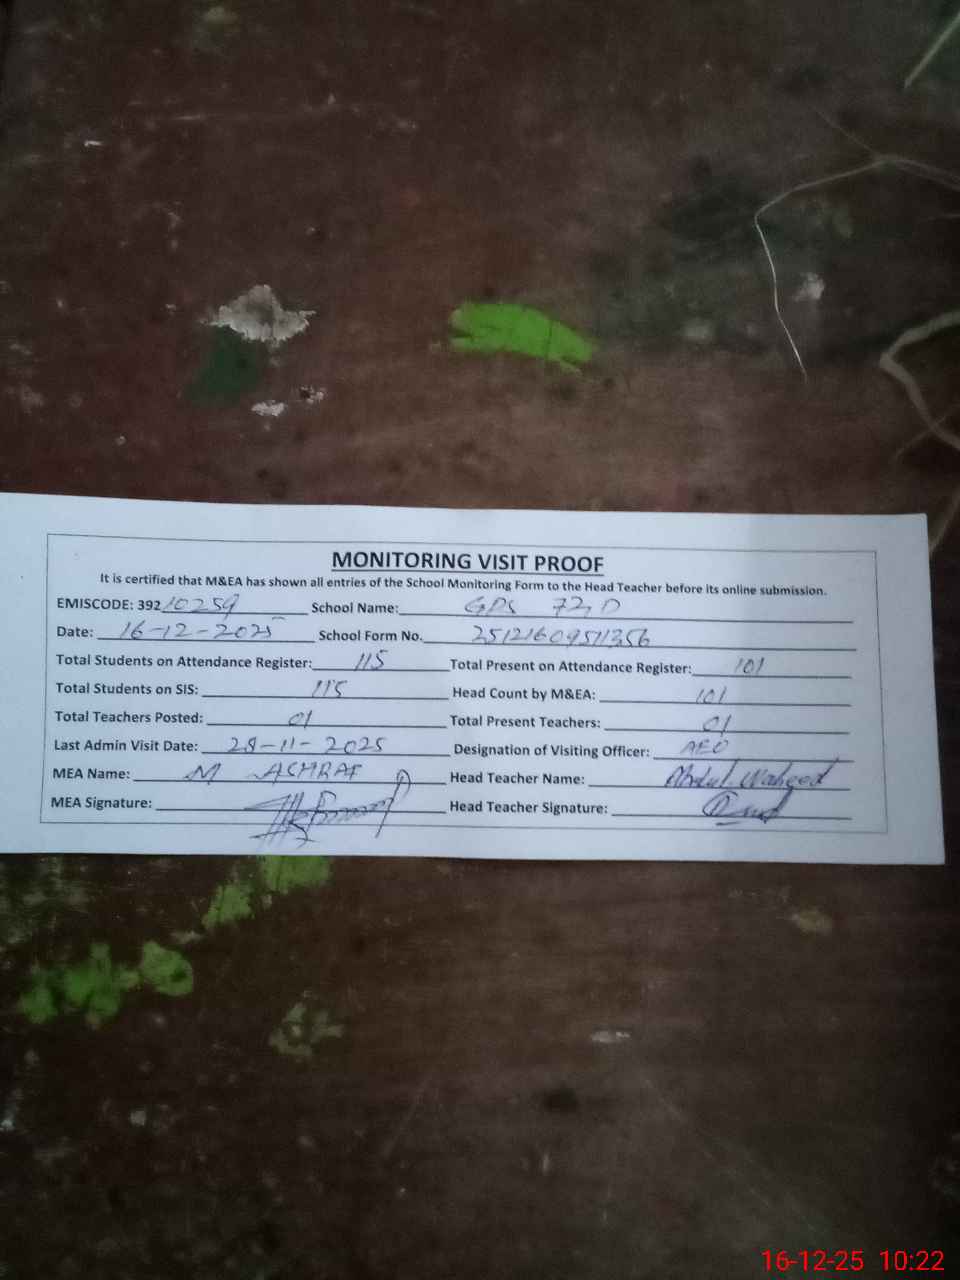 MONITORING VISIT PROOF
It is certified that M&EA has shown all entries of the School Monitoring Form to the Head Teacher before its online submission.
EMISCODE: 39210259 School Name: GPS 72/D
Date: 16-12-2025 School Form No. 25121609511356
Total Students on Attendance Register: 115 Total Present on Attendance Register: 101
Total Students on SIS: 115 Head Count by M&EA: 101
Total Teachers Posted: 01 Total Present Teachers: 01
Last Admin Visit Date: 28-11-2025 Designation of Visiting Officer: AEO
MEA Name: M ASHRAF Head Teacher Name: Abdul Waheed
MEA Signature: Head Teacher Signature:
16-12-25 10:22